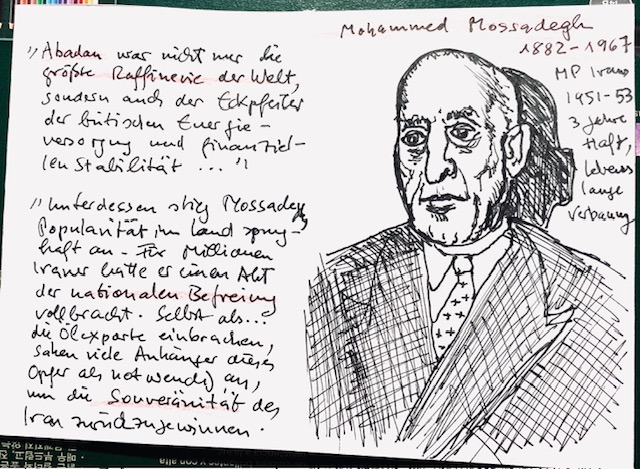 Mohammed Mossadegh
1882-1967
MP Irans
1951-53
3 Jahre
Haft,
lebens
lange
Verbannung
"Abadan war nicht nur die
größte Raffinerie der Welt,
sondern auch der Eckpfeiler
der britischen Energie-
versorgung und finanziel-
len Stabilität ..."
"Unterdessen stieg Mossadeghs
Popularität im Land sprung-
haft an - Für Millionen
Iraner hatte er einen Akt
der nationalen Befreiung
vollbracht. Selbst als...
die Ölexporte einbrachen,
sahen viele Anhänger dieses
Opfer als notwendig an,
um die Souveränität des
Iran zurückzugewinnen.